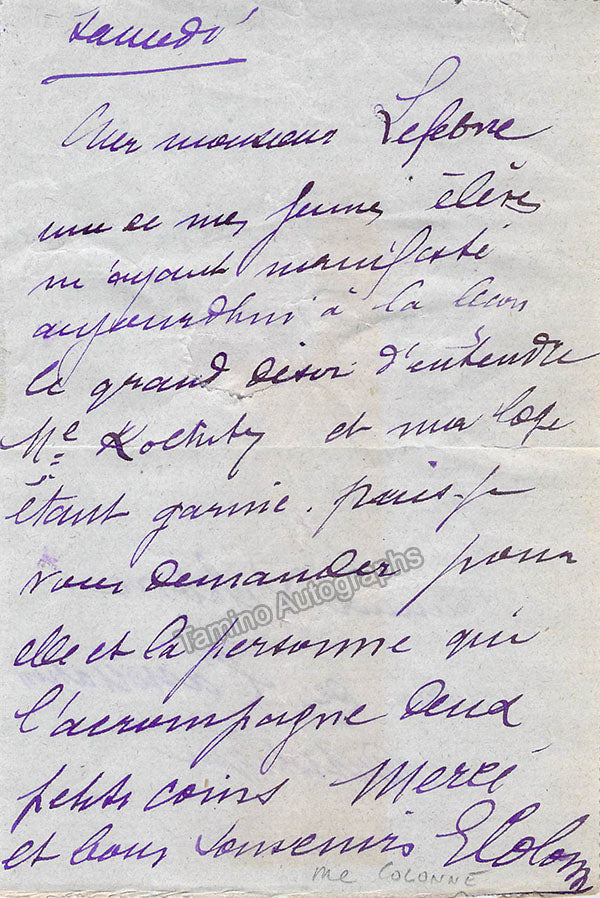 Samedi
Cher monsieur Lefebvre
une de mes jeunes élèves
m'ayant manifesté
aujourdhui à la leçon
le grand désir d'entendre
Me et ma loge
étant garnie. puis-je
vous demander pour
elle et la personne qui
l'accompagne deux
petits coins Merci
et bons souvenirs EColonne
Me COLONNE
Tamino Autographs